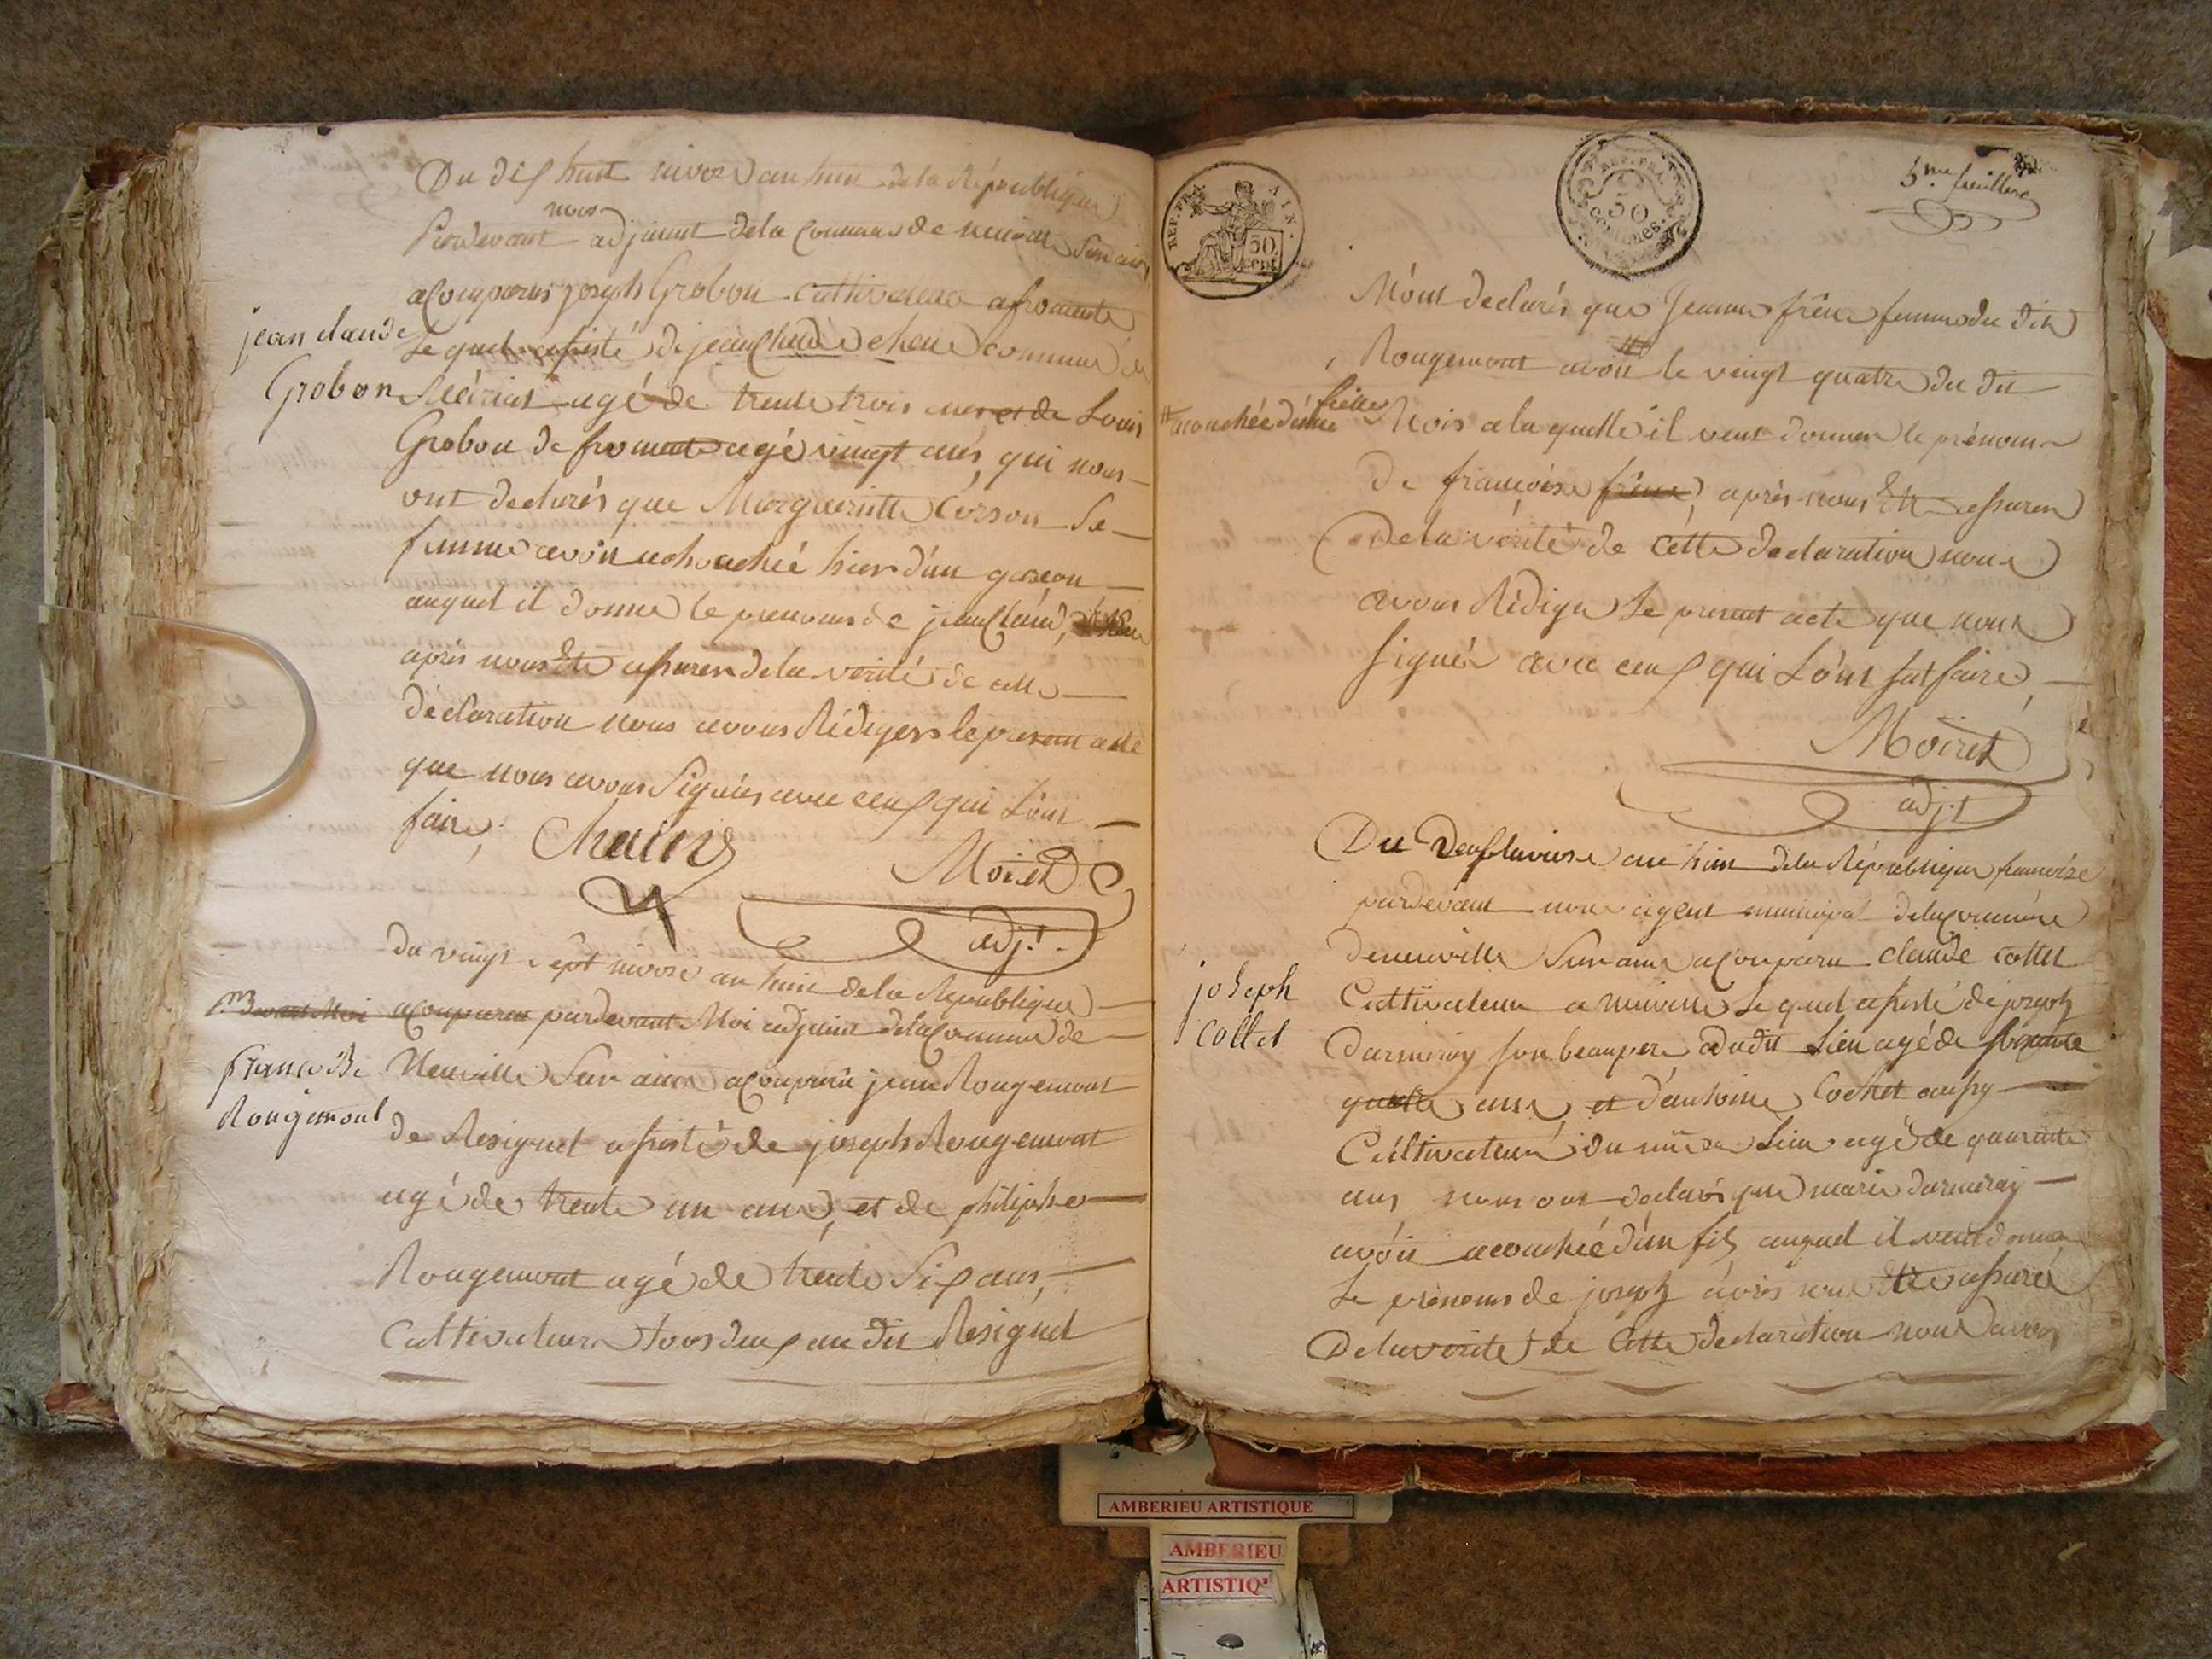 Du dix huit nivose an huit de la République
Pardevant nous adjoint de la Commune de neuville Sur ain
a Comparus joseph Grobon cultivateur a fromente
jean claude
Grobon
Le quel assisté de jean Claude chene commune de
Mérias agé de trente trois ans et de Louis
Grobon de fromente agé vingt ans, qui nous
ont declarés que Margueritte Corson Sa
femme avoit achouchée hier d'un garcon
auquel il donne le prenoms de jean Claude,
après nous Etre assurer de la verité de cette
déclaration nous avons Rédigers le present acte
que nous avons Signées avec ceux qui L'ont
faire,
Chain
Moiret
adj.t
du vingt Sept nivose an huit de la République
pardevant Moi
a Comparus pardevant Moi adjoint de la Commune de
francoise
Rougemont
Neuville Sur ain a Comparu jean Rougemont
de Resignet assisté de joseph Rougemont
agé de trente un ans, et de philiphe
Rougemont agé de trente Six ans,
Cultivateurs tous deux au dit Resignel
REP. FRA. AIN.
50 CENT.
REP. FRA.
50 centimes
5.me feuillet
M'ont declarés que Jeanne frêne femme du dit
Rougemont avoit le vingt quatre du dit
acouchée d'une fille
Mois a la quelle il veut donner le prénom
de francoise frêne, après nous Etre assurer
De la vérité de Cétte declaration nous
avons Rédiger Le present acte que nous
Signés avec ceux qui L'ont fat faire,
Moiret
adj.t
Du Deux pluviose an huit de la République francoise
pardevant nous agent municipal de la Commune
de neuville Sur ain a Comparu claude collet
joseph
collet
Cultivateur a neuville Le quel assisté de joseph
Darmeray son beaupere dudit Lieu agé de soixante
ans et d'antoine Cochet aussy
Cultivateur du même Lieu agé de quarante
ans nous ont declarés que marie darmeray
avoit acouchée d'un fils auquel il veut donner
Le prénoms de joseph après nous Etre assuré
De la vérité de Cette declaration nous avons
AMBERIEU ARTISTIQUE
AMBERIEU
ARTISTIQ